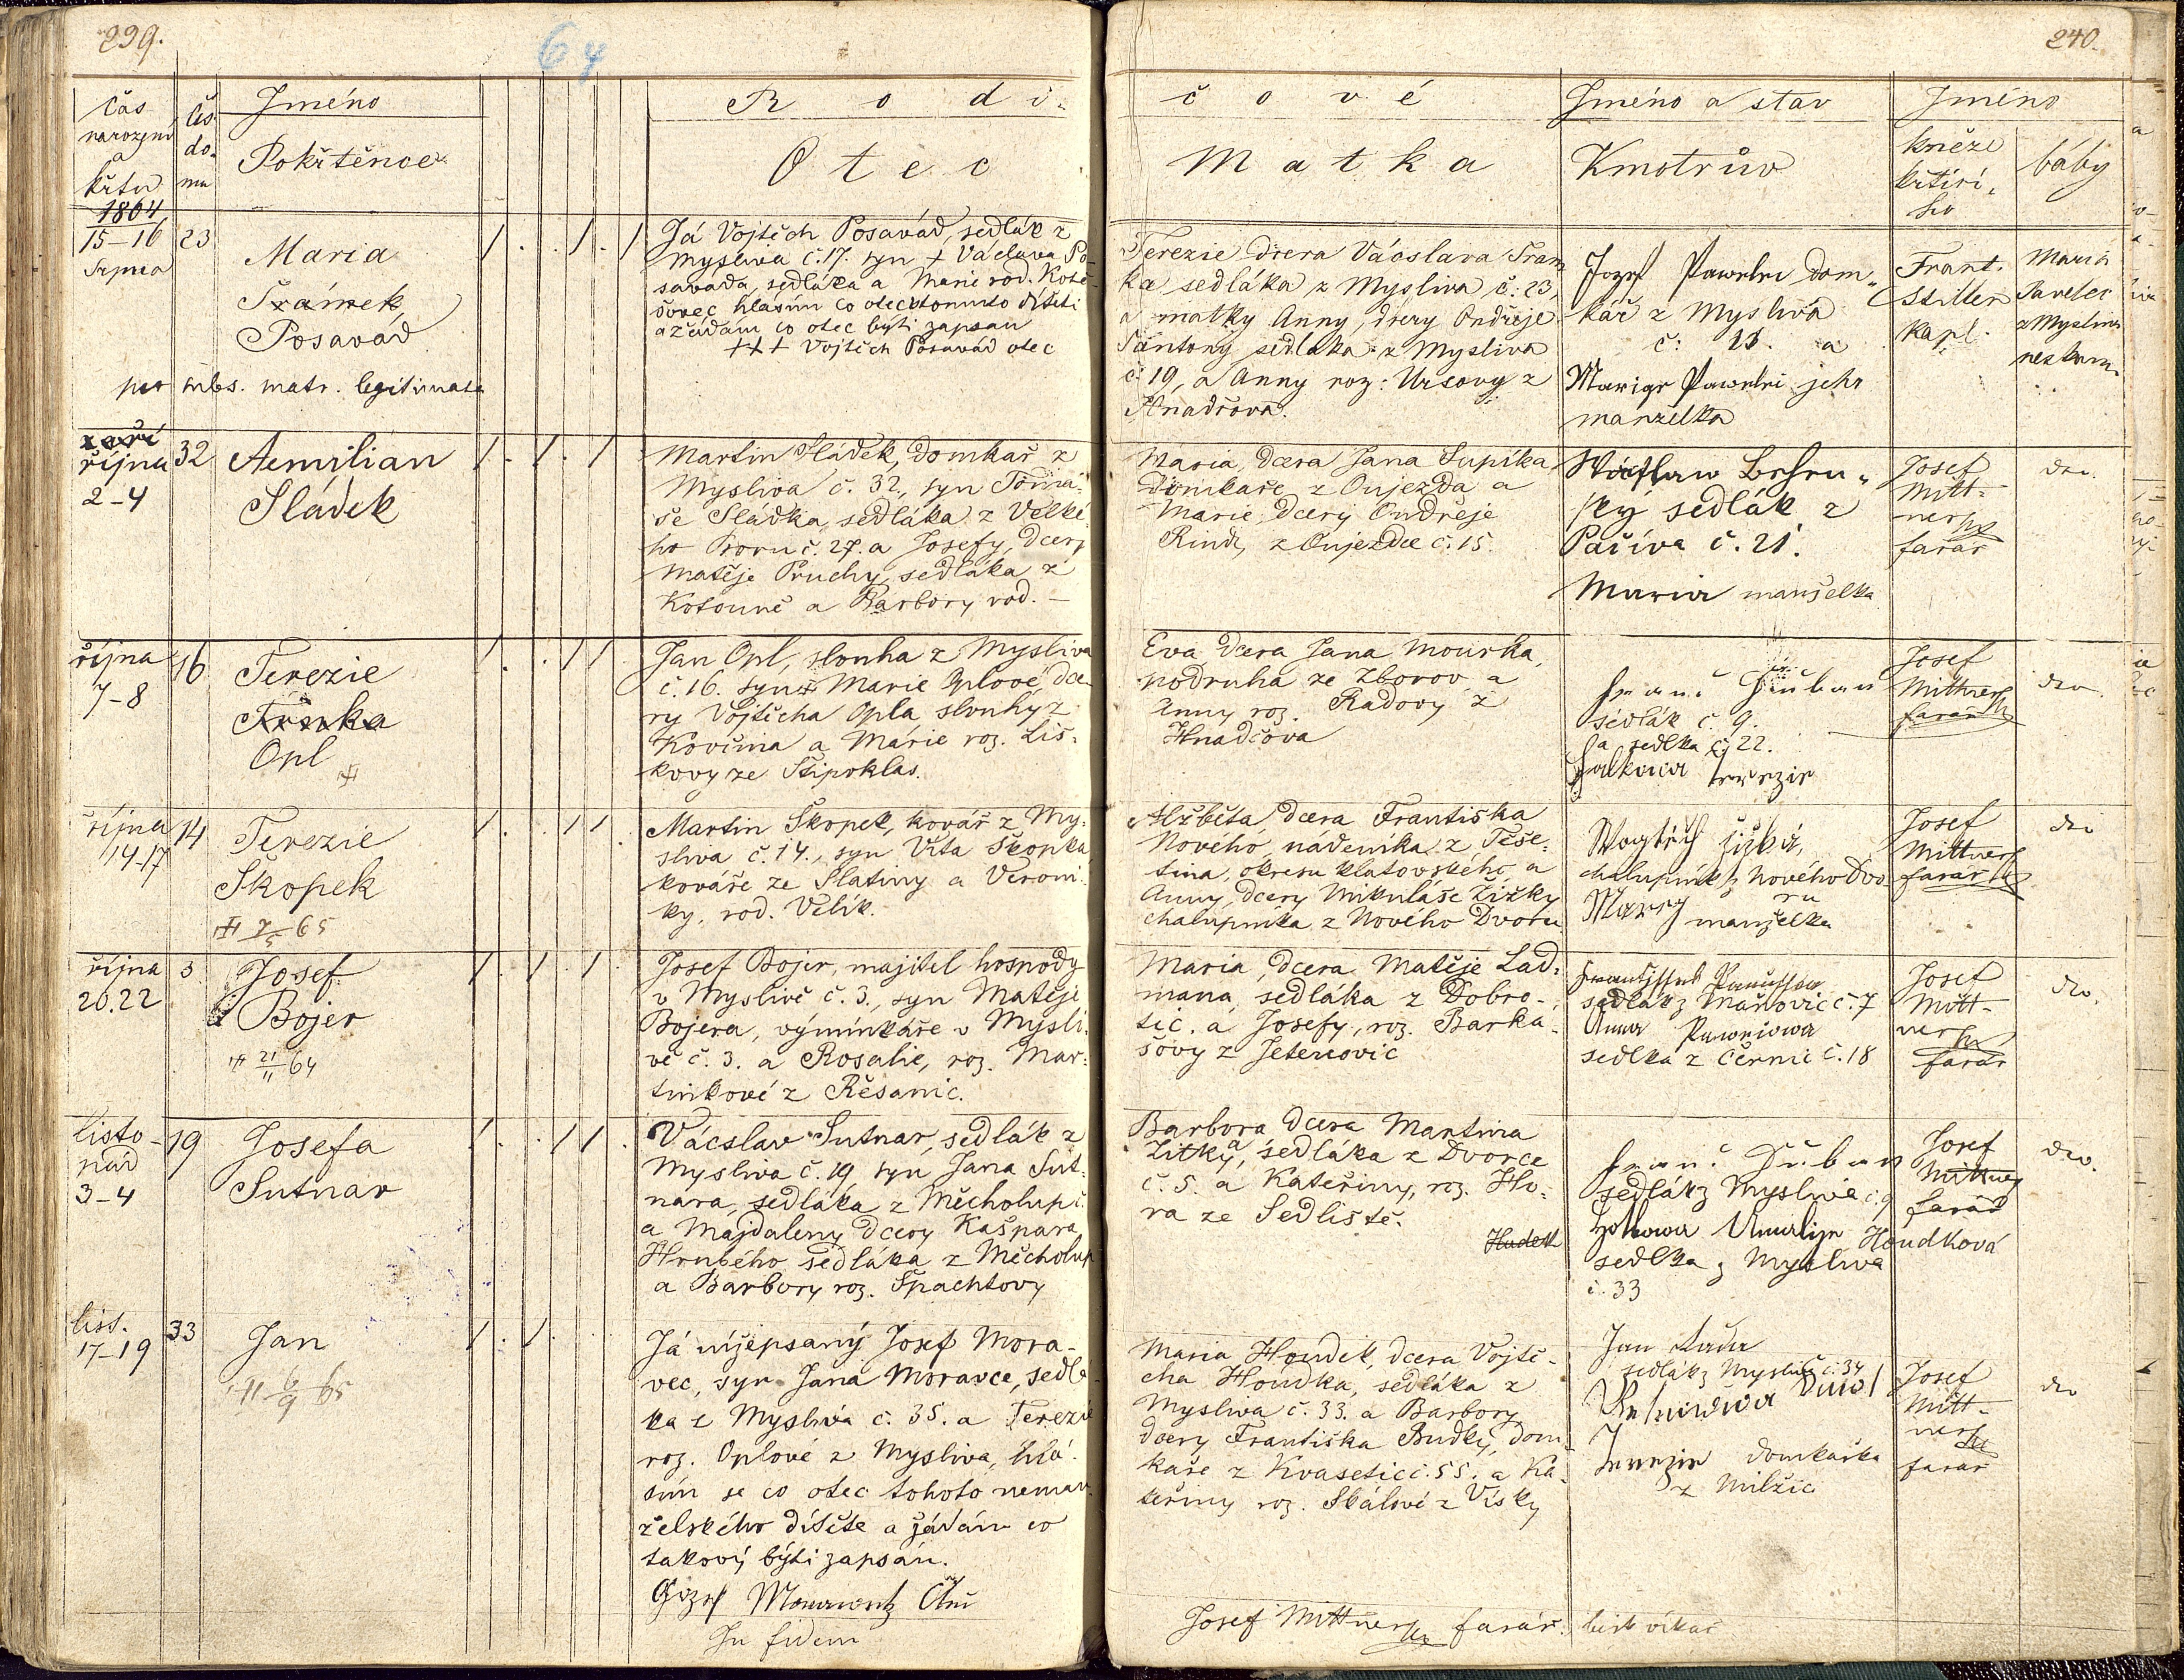 239.
64
240.
čas
narození
a
křtu
1864
čís.
do.
mu
Jméno
Pokřtěnce
R o d i.
O t e c
č o v é
M a t k a
Jméno a stav
Kmotrův
Jméno
kněze
křtící.
ho
báby
15-16
Srpna
23
Maria
Trámek
Posavad
per subs. matr. legitimata
Já Vojtěch Posavád, sedlák z
Mysliva č. 17. syn † Václava Po-
savada, sedláka a Marie rod. Kote-
šovec hlásím co otec k tomuto dítěti
a žádám co otec býti zapsan
+++ Vojtěch Posavád otec
Terezie dcera Vácslava Tram
ka sedláka z Mysliva č: 23,
a matky Anny, dcery Ondřeje
sedláka z Mysliva
č. 19, a Anny roz: Ursovy z
Hnačova.
Jozef Pawelec dom„
kář z Mysliva
č: 11. a
Marige jeho
manželka
Frant.
Stiller
kapl.
Maria
Pavelec
z Mysliva
nezkoum.
září
října
2-4
32
Aemilian
Sládek
Martin Sládek, domkář z
Mysliva č. 32, syn Tomá-
še Sládka, sedláka z Velké-
ho Boru č. 27. a Josefy, dcery
Matěje Pruchy, sedláka z
Kotouně a Barbory rod. —
Maria, dcera Jana Supíka
domkáře z Oujezda a
Marie, dcery Ondřeje
Rind, z Oujezdce č. 15.
ský sedlák z
Pačíva č. 21.
Maria manželka
Josef
Mitt-
ner
farář
dto.
října
7-8
16
Terezie
Trnka
Opl
Jan Opl, slouha z Mysliva
č. 16. syn Marie Oplové, dce-
ry Vojtěcha Opla, slouhy z
Kovčína a Marie roz. Liš-
kovy ze Štipoklas.
Eva, dcera Jana Mourka,
podruha ze Zborov a
Anny roz. Radovy z
Hnačova
sedlák č. 9.
a sedlka č. 22.
Terezie
Josef
Mittner
farář
dto.
října
14-17
14
Terezie
Škopek
7/5 65
Martin Škopek, kovář z My-
sliva č. 14., syn Víta Škopka
kováře ze Slatiny a Veroni-
ky, rod. Velík.
Alžběta, dcera Františka
Nového, nádeníka z Těše-
tina, okresu klatovského, a
Anny, dcery Mikuláše Žižky
chalupníka z Nového Dvoru
chalupník z Nového Dvo
ru
manželka
Josef
Mittner
farář
dto
října
20.22
3
Josef
Bojer
21/11 64
Josef Bojer, majitel hospody
v Myslivě č. 3., syn Matěje
Bojera, výminkáře v Mysli-
vě č. 3. a Rosalie, roz. Mar-
tinkové z Řesanic.
Maria, dcera Matěje Lad-
mana, sedláka z Dobro-
tic. a Josefy, roz. Barka-
šovy z Jetenovic
sedlák z Maňovic č. 7
Anna
sedlka z Černic č. 18
Josef
Mitt-
ner
farář
dto.
listo-
pad
3-4
19
Josefa
Sutnar
Vácslav Sutnar, sedlák z
Mysliva č. 19, syn Jana Sut-
nara, sedláka z Měcholup č.
a Majdaleny dcery Kašpara
Hrubého sedláka z Měcholup
a Barbory roz. Špachtovy
Barbora dcera Martina
Zítky, sedláka z Dvorce
č. 5. a Kateřiny, roz. Ho-
ra ze Sedliště.
Hudek
sedlák z Mysliva č. 9
Houdková
sedlka z Mysliva
č. 33
Josef
Mittner
farář
dto.
list.
17-19
33
Jan
6/9 65
Já nížepsaný Josef Mora-
vec, syn Jana Moravce, sedlá-
ka z Mysliva č. 35. a Terezie
roz. Oplové z Mysliva, hlá-
sím se co otec tohoto neman-
želského dítěte a žádám co
takový býti zapsán.
In fidem
Maria Houdek, dcera Vojtě-
cha Houdka, sedláka z
Mysliva č. 33. a Barbory
dcery Františka Budky, dom
káře z Kvasetic č. 55. a Ka-
teřiny roz. Skálové z Vísky
Jan
sedlák z Mysliva č. 34
Terezie domkářka
z Milžic
Josef
Mitt-
ner
farář
dto
Josef Mittner farář.